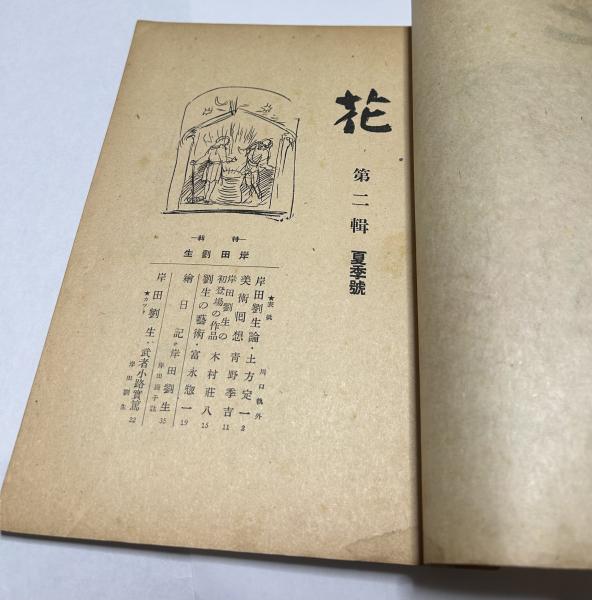 花
第二輯 夏季號
―特輯―
岸田劉生
★表紙 川口軌外
岸田劉生論・土方定一 2
美術囘想 靑野季吉 11
岸田劉生の初登場の作品 木村莊八 15
劉生の藝術・富永惣一 19
繪日記・岸田劉生 35
岸田劉生・武者小路實篤 22
★カット 岸田劉生